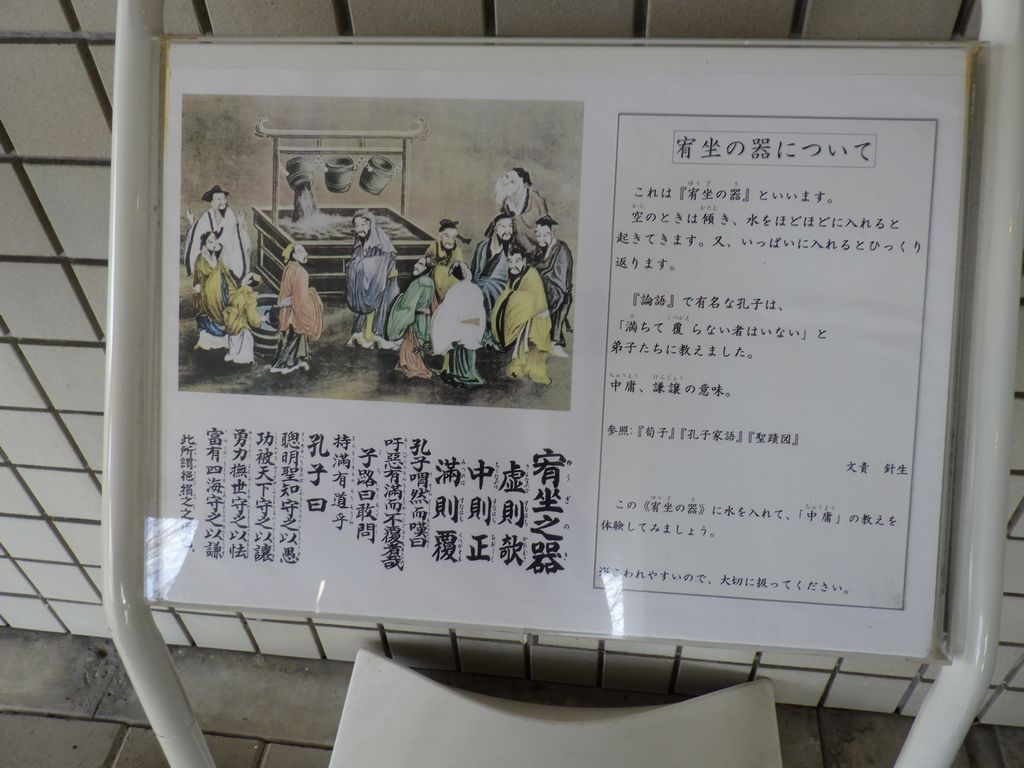 宥坐の器について
これは『宥坐の器』といいます。
空のときは傾き、水をほどほどに入れると
起きてきます。又、いっぱいに入れるとひっくり
返ります。
『論語』で有名な孔子は、
「満ちて覆らない者はいない」と
弟子たちに教えました。
中庸、謙譲の意味。
参照:『荀子』『孔子家語』『聖蹟図』
文責 針生
この《宥坐の器》に水を入れて、「中庸」の教えを
体験してみましょう。
こわれやすいので、大切に扱ってください。
宥坐之器
虚則欹
中則正
満則覆
孔子喟然而嘆曰
吁惡有満而不覆者哉
子路曰敢問
持満有道乎
孔子曰
聰明聖知守之以愚
功被天下守之以讓
勇力撫世守之以怯
富有四海守之以謙
此所謂挹損之